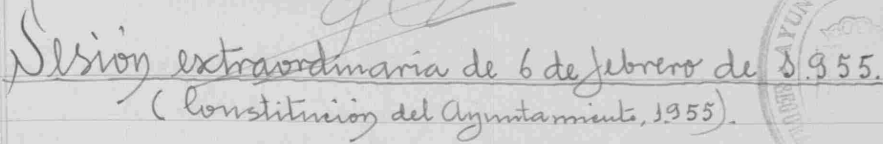 Sesión extraordinaria de 6 de febrero de 1.955.
(Constitución del Ayuntamiento, 1955).
AYUN